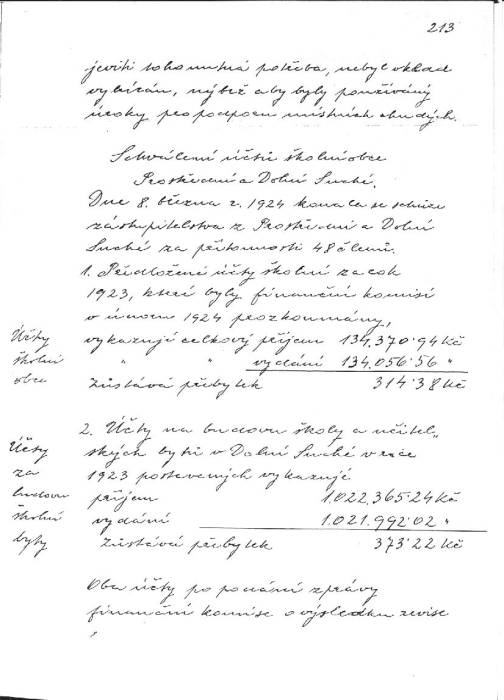 213
jeviti toho nutná potřeba, nebyl vklad
vybírán, nýbrž aby byly používány
úroky pro podporu místních chudých.
Schválení účtů školní obce
Prostřední a Dolní Suché.
Dne 8. března r. 1924 konala se schůze
zastupitelstva z Prostřední a Dolní
Suché za přítomnosti 48 členů.
1. Předložené účty školní za rok
1923, které byly finanční komisí
v únoru 1924 prozkoumány,
Účty vykazují celkový příjem 134.370·94 Kč
školní " " vydání 134.056·56 "
obce Zůstává přebytek 314·38 Kč
2. Účty na budovu školy a učitel„
Účty ských bytů v Dolní Suché v roce
za 1923 postavených vykazují
budovu příjem 1.022.365·24 Kč
školní vydání 1.021.992·02 "
byty Zůstává přebytek 373·22 Kč
Oba účty po podání zprávy
finanční komise o výsledku revise